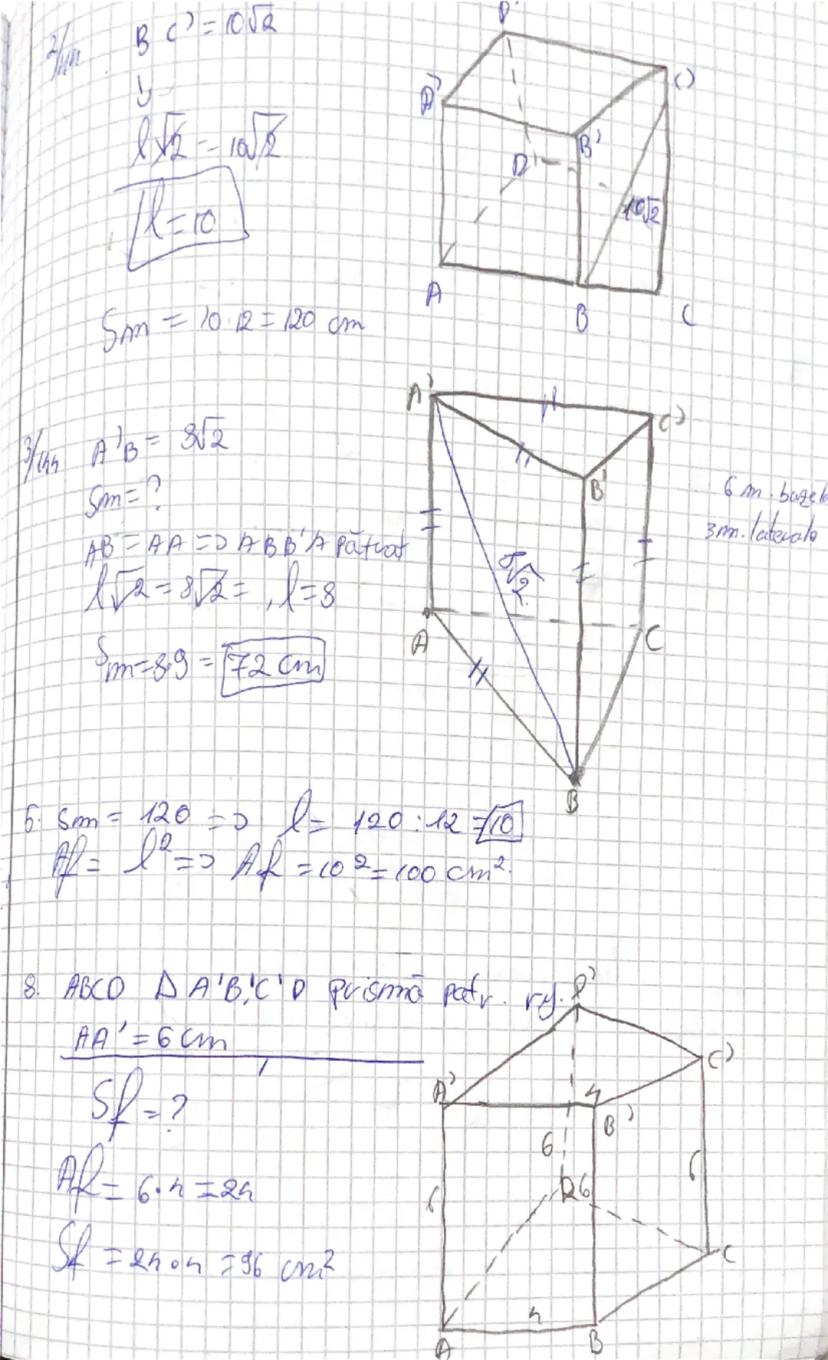 2/
BC' = 10√2
l√2 = 10√2
l = 10
Sm = 10·12 = 120 cm
D'
A'
C'
B'
D
10√2
A
B
C
3/
A'B = 8√2
Sm = ?
AB = AA => ABB'A pătrat
l√2 = 8√2 =, l = 8
Sm = 8·9 = 72 cm
A'
C'
B'
6 m. bazele
3 m. laterale
8√2
A
C
B
5. Sm = 120 => l = 120 : 12 = 10
Af = l² => Af = 10² = 100 cm².
8. ABCD A'B'C'D prismă patr. rg.
AA' = 6 cm
Sf = ?
Af = 6·4 = 24
Sf = 24·4 = 96 cm²
D'
C'
A'
4
B'
6
6
D
6
6
C
4
A
B